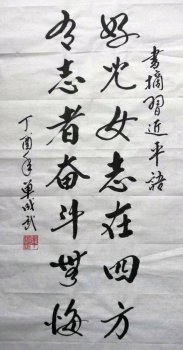 书摘习近平語
好儿女志在四方
有志者奋斗無悔
丁酉年單成武